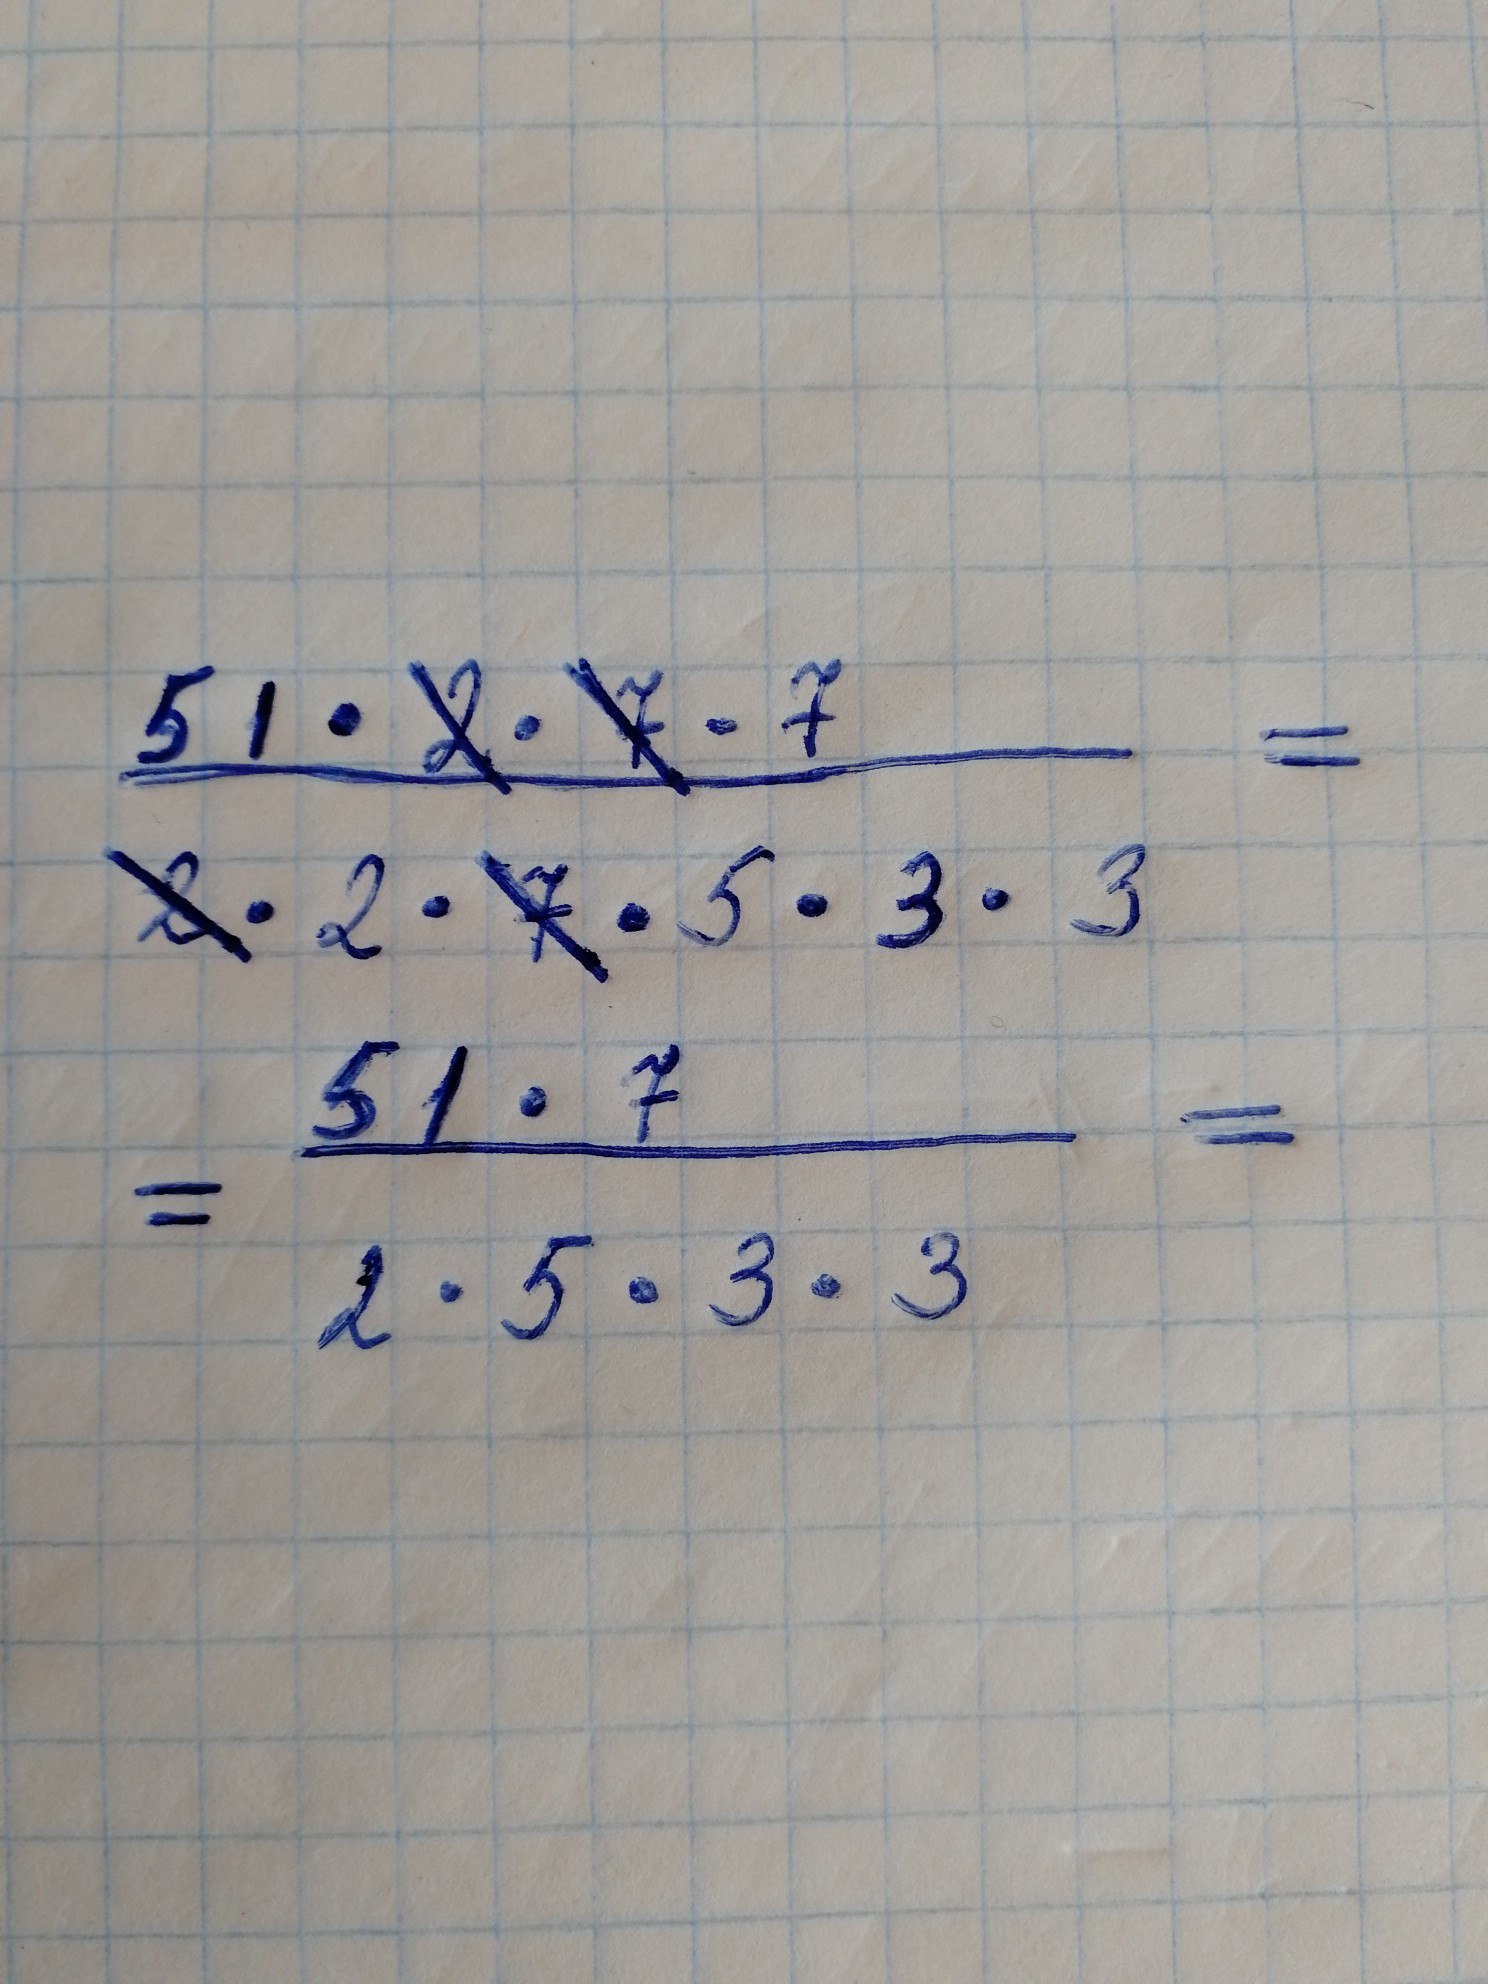 51 · 2 · 7 · 7 =
2 · 2 · 7 · 5 · 3 · 3
51 · 7 =
=
2 · 5 · 3 · 3